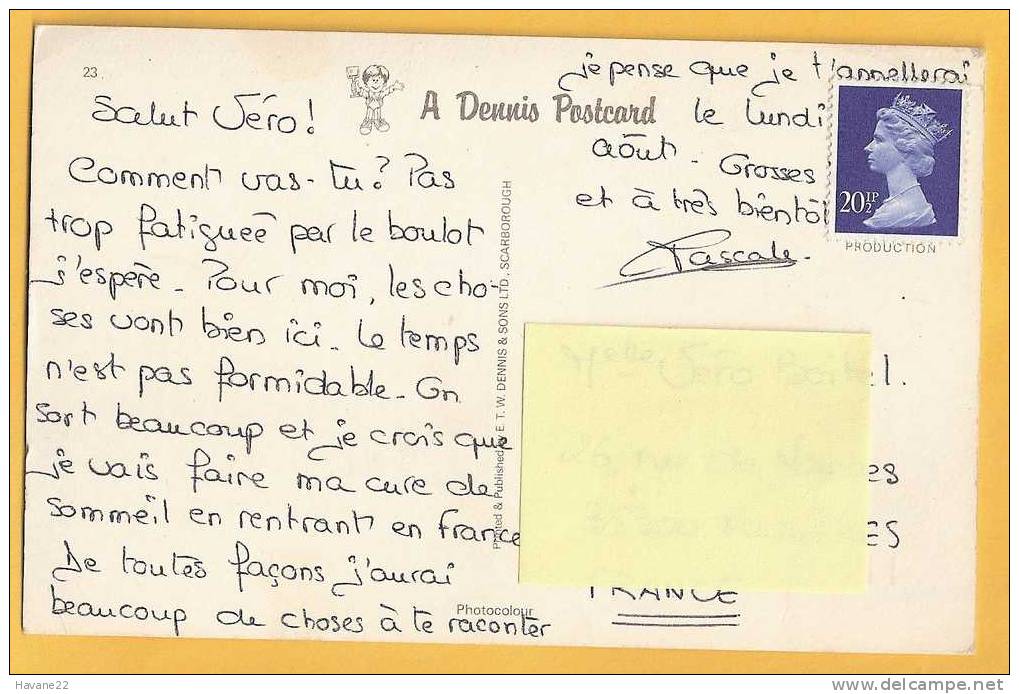 23
A Dennis Postcard
Salut Véro!
Comment vas-tu? Pas
trop fatiguée par le boulot
j'espère. Pour moi, les cho-
ses vont bien ici. Le temps
n'est pas formidable. On
sort beaucoup et je crois que
je vais faire ma cure de
sommeil en rentrant en France
De toutes façons j'aurai
beaucoup de choses à te raconter
Photocolour
Printed & Published by E. T. W. DENNIS & SONS LTD., SCARBOROUGH
je pense que je t'appellerai
le lundi
août. Grosses
et à très bientôt
Pascale.
20½P
PRODUCTION
FRANCE
Havane22
www.delcampe.net